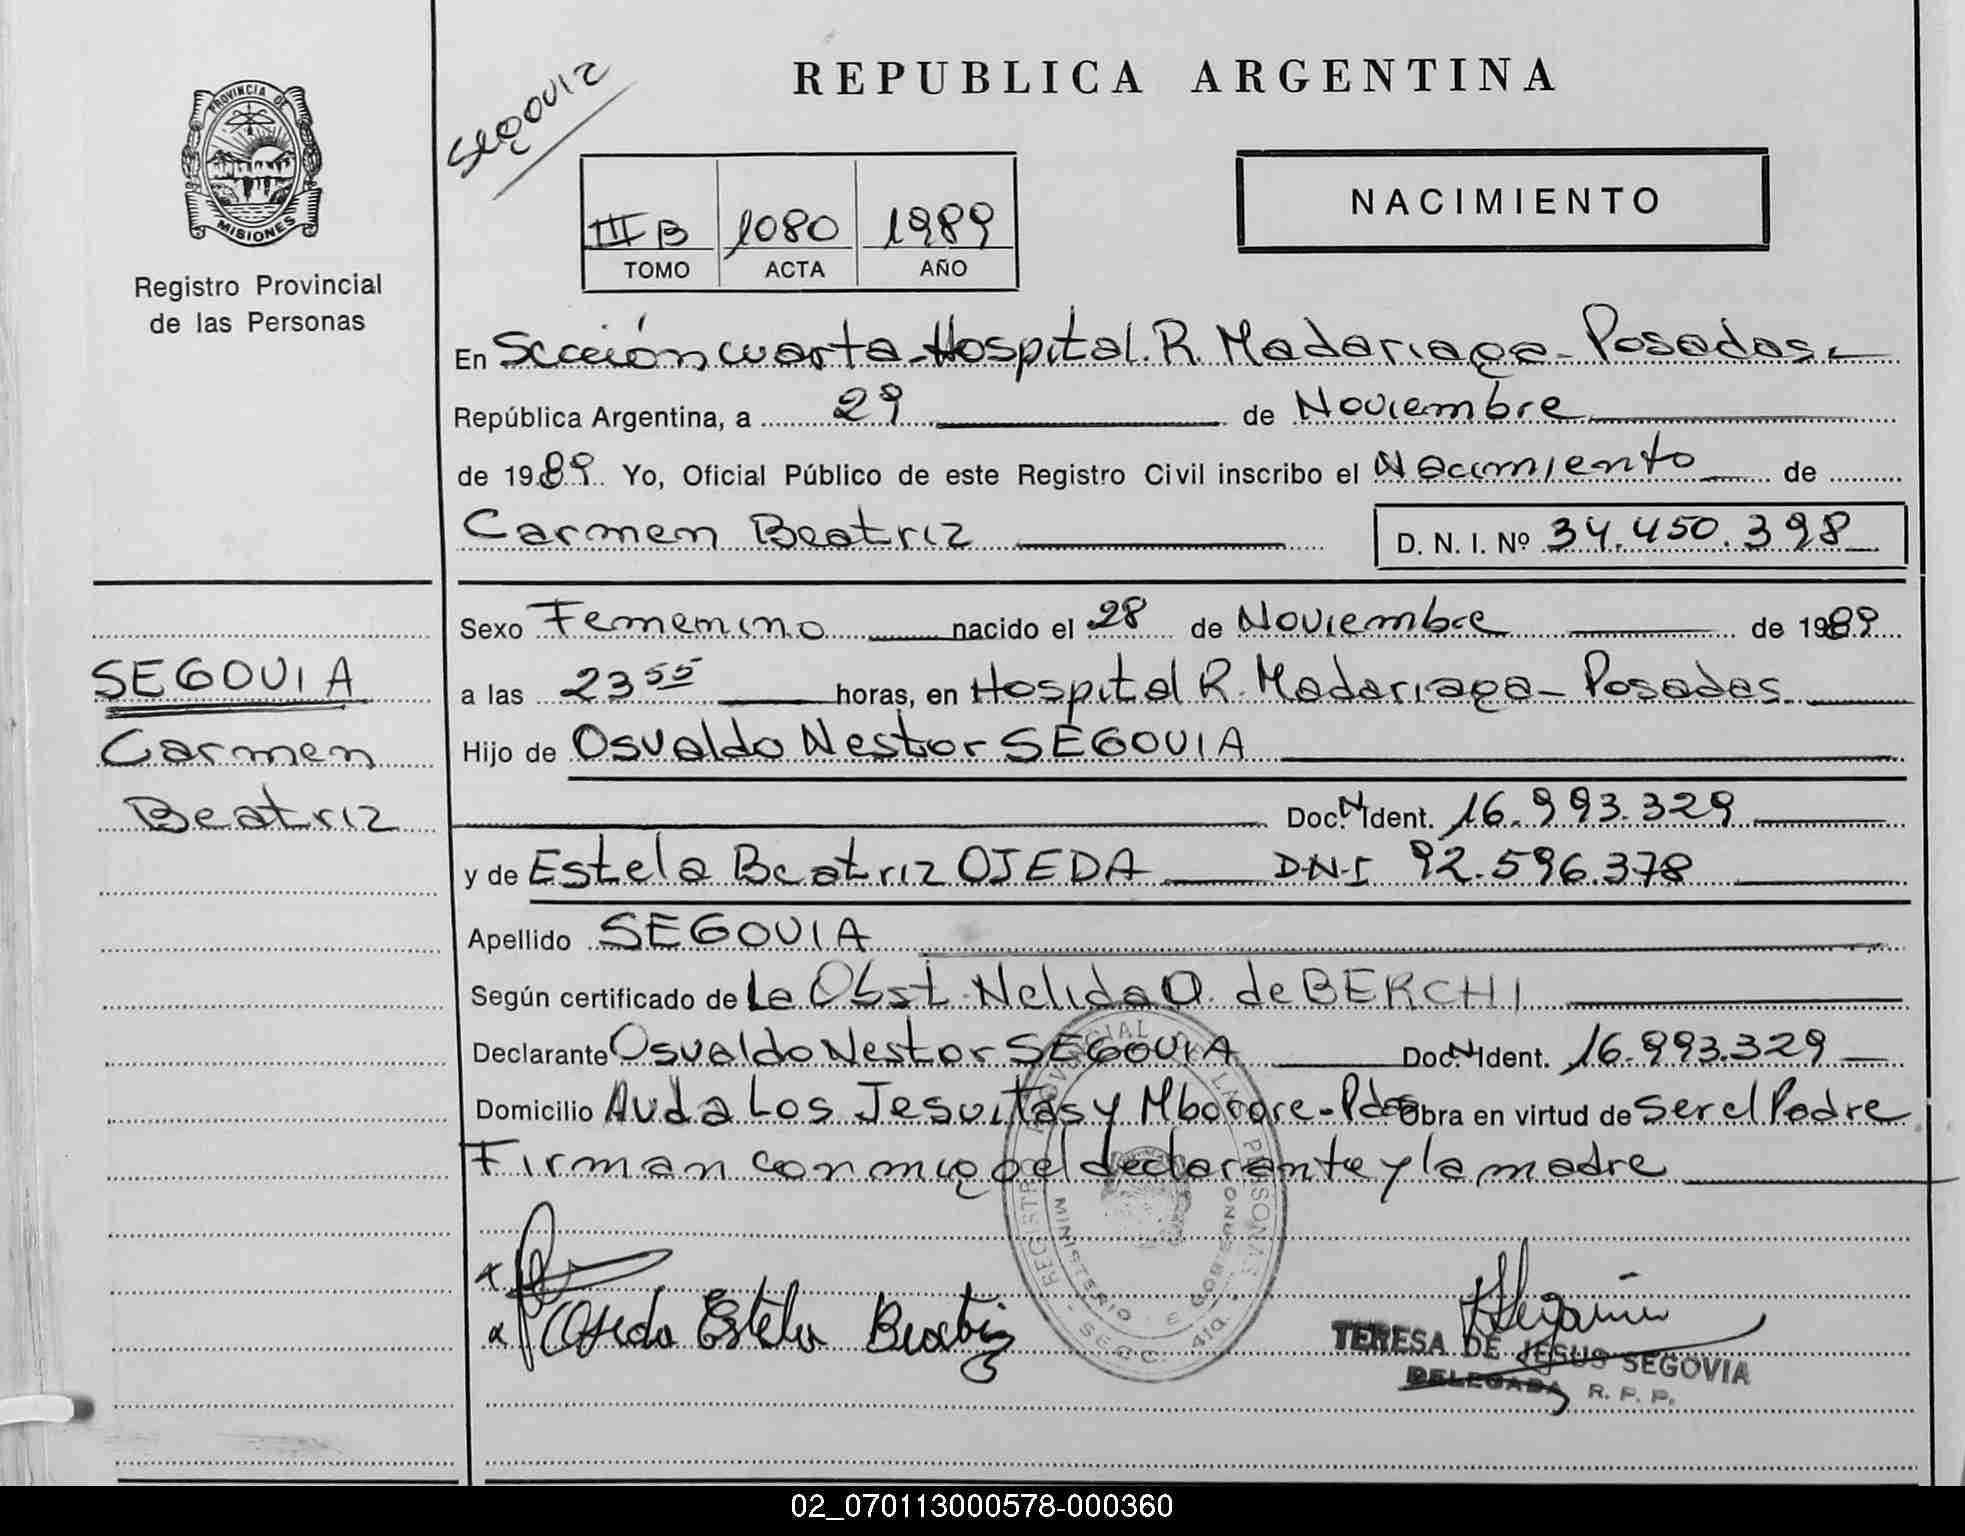 PROVINCIA DE
MISIONES
Registro Provincial
de las Personas
REPUBLICA ARGENTINA
NACIMIENTO
III B 1080 1989
TOMO ACTA AÑO
En Sección cuarta - Hospital. R. Madariaga - Posadas.
República Argentina, a 29 de Noviembre
de 1989. Yo, Oficial Público de este Registro Civil inscribo el Nacimiento de
Carmen Beatriz D. N. I. Nº 34.450.398
Sexo Femenino nacido el 28 de Noviembre de 1989
a las 23 55 horas, en Hospital R. Madariaga - Posadas.
Hijo de Osvaldo Nestor SEGOVIA
Doc. N. Ident. 16.993.329
y de Estela Beatriz OJEDA D.N.I 92.596.378
Apellido SEGOVIA
Según certificado de La Obst. Nelida O. de BERCHI
Declarante Osvaldo Nestor SEGOVIA Doc. N. Ident. 16.993.329
Domicilio Avda Los Jesuitas y Mborore - Pdas Obra en virtud de Ser el Padre
Firman conmigo el declarante y la madre
SEGOVIA
Carmen
Beatriz
Ojeda Estela Beatriz
REGISTRO PROVINCIAL DE LAS PERSONAS
MINISTERIO DE GOBIERNO
SECC. 4ta.
TERESA DE JESUS SEGOVIA
DELEGADA R. P. P.
02_070113000578-000360